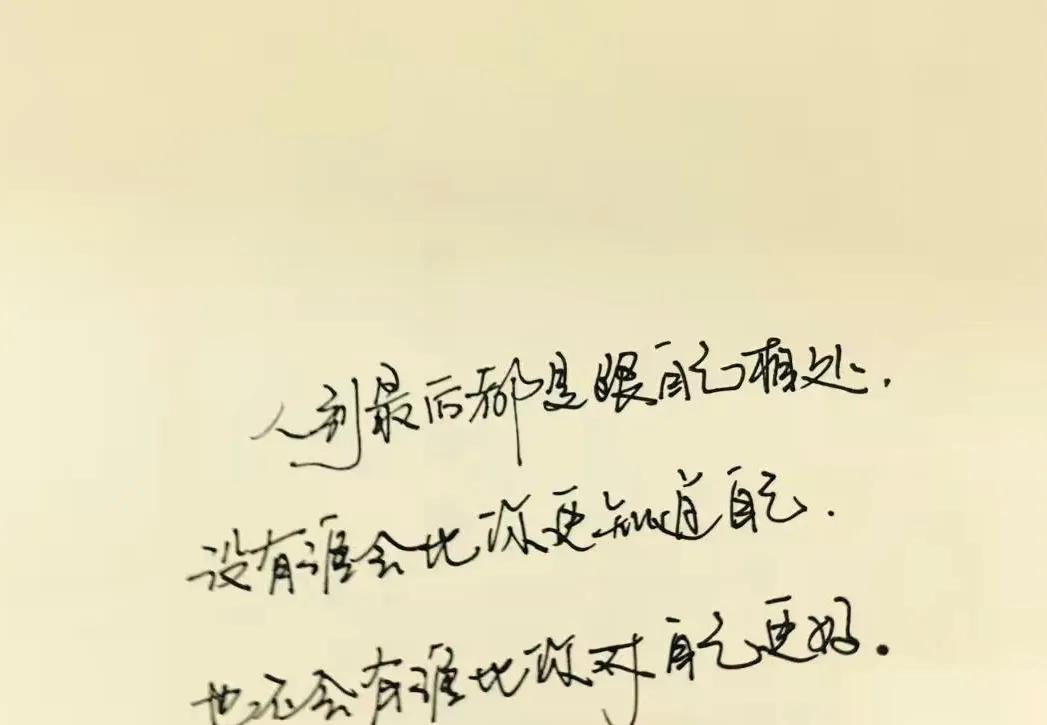 人到最后都是跟自己相处.
没有谁会比你更知道自己.
也不会有谁比你对自己更好.